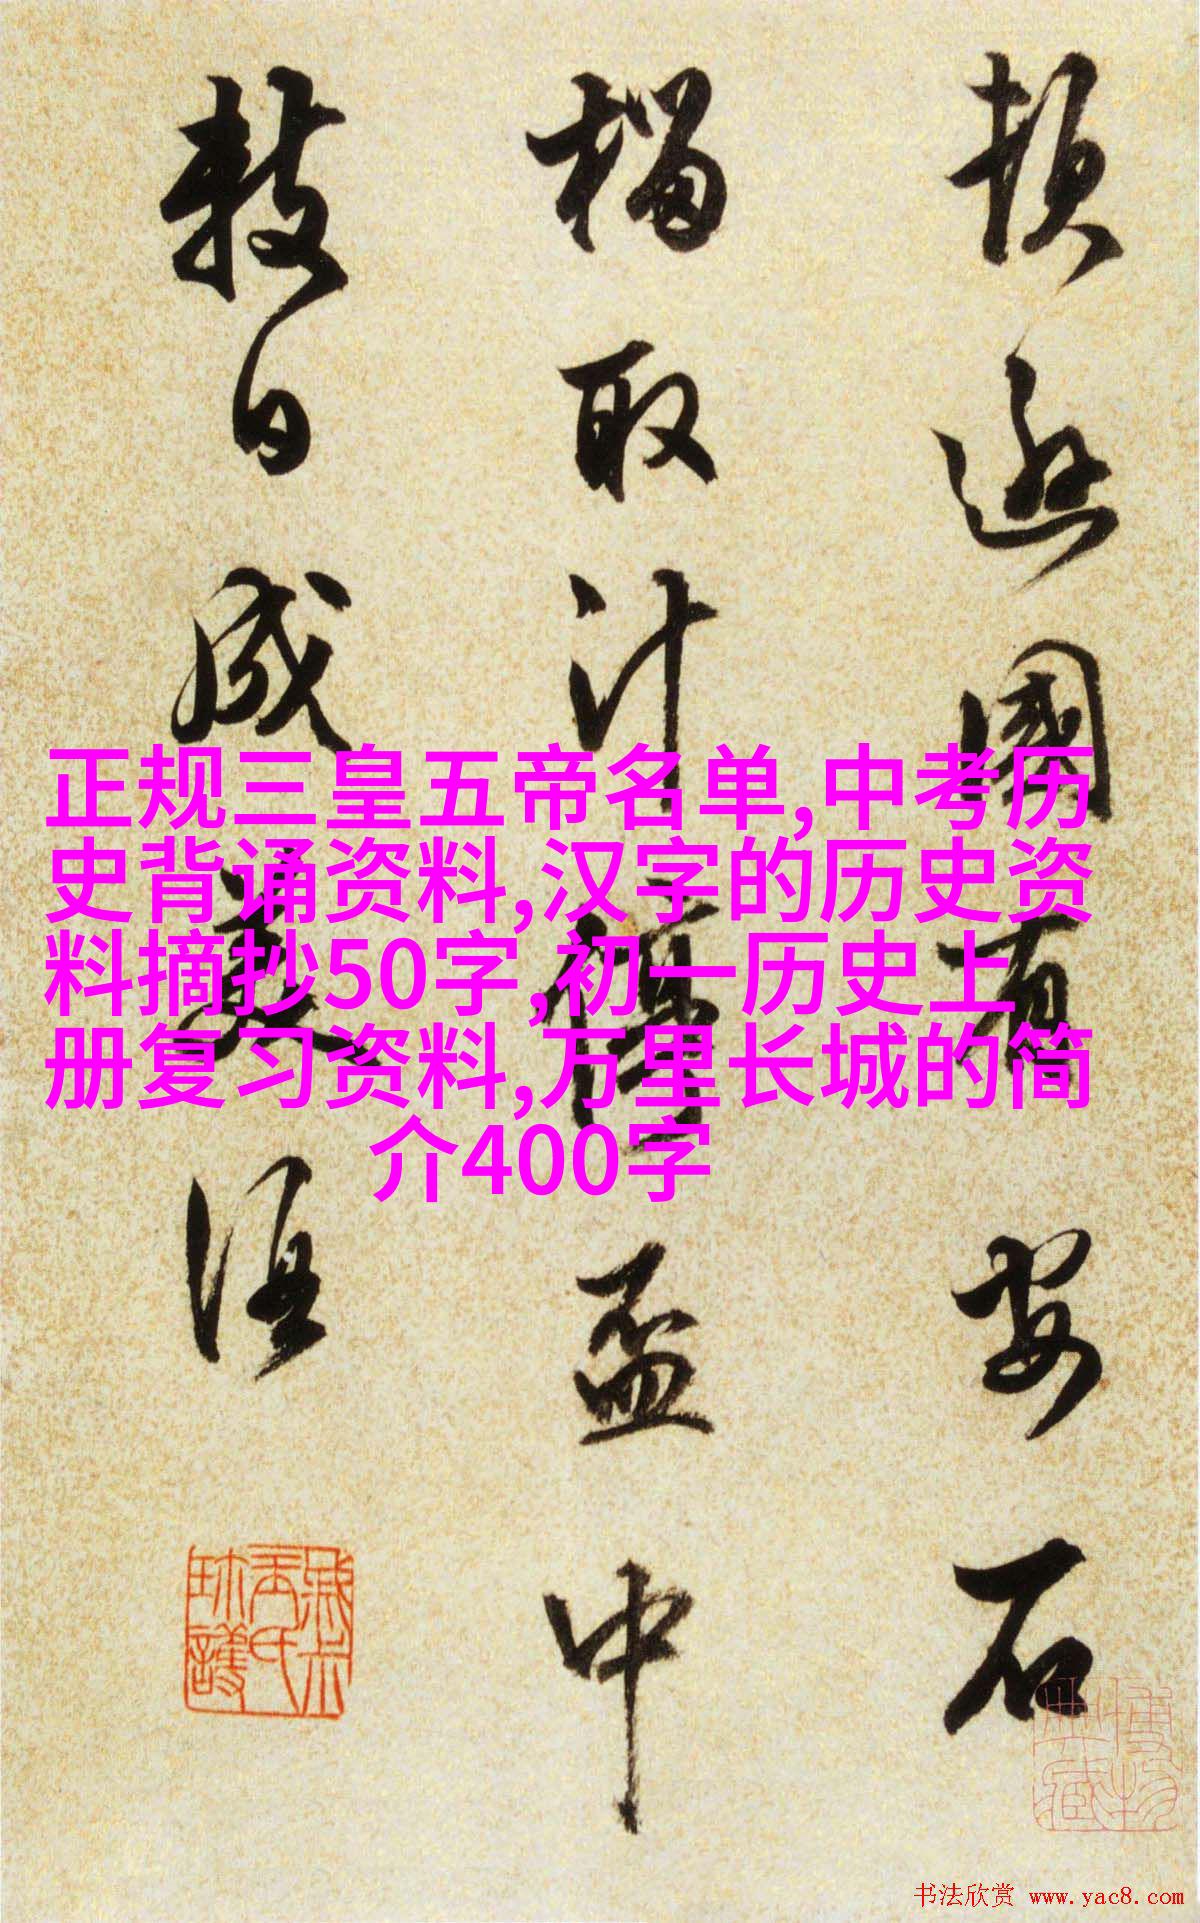 頓遜國有安石
榴取汁停盃中
數日成美酒
正规三皇五帝名单,中考历
史背诵资料,汉字的历史资
料摘抄50字,初一历史上
册复习资料,万里长城的简
介400字
书法欣赏 www.yac8.com